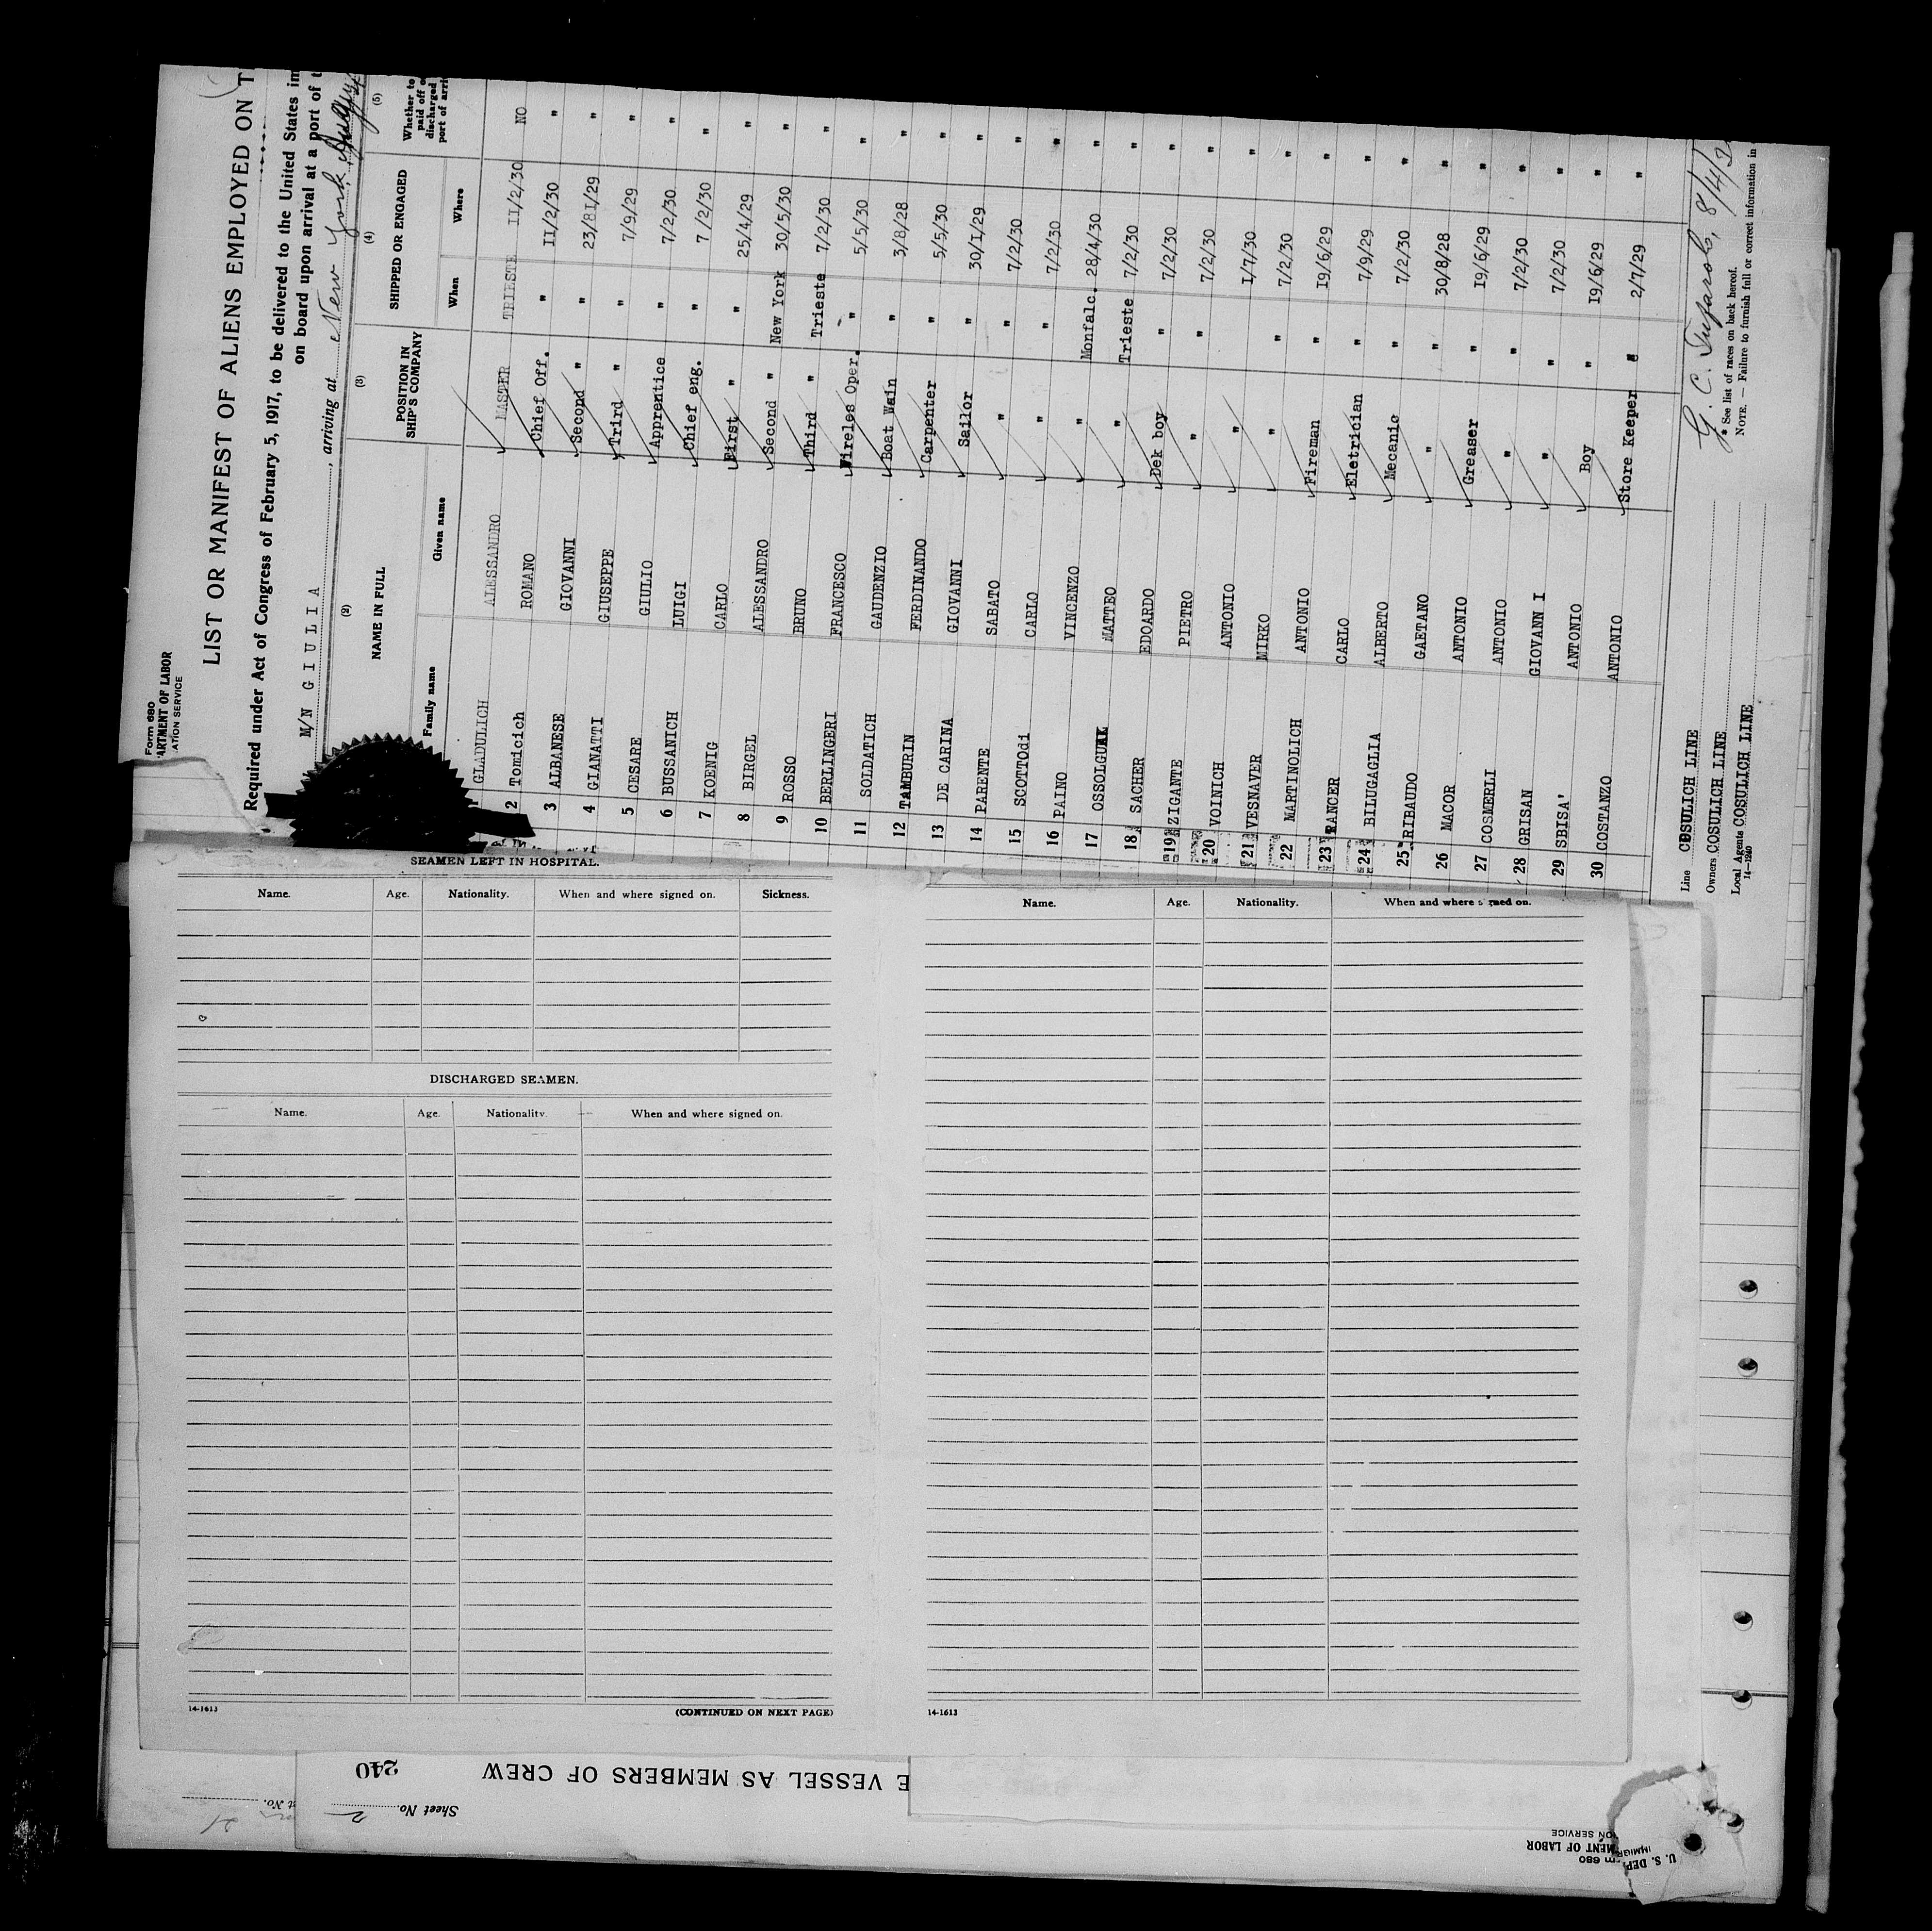 Form 680
ARTMENT OF LABOR
ATION SERVICE
LIST OR MANIFEST OF ALIENS EMPLOYED ON T
Required under Act of Congress of February 5, 1917, to be delivered to the United States im
on board upon arrival at a port of t
M/N GIULIA , arriving at New York,
(2) (3) (4) (5)
NAME IN FULL POSITION IN SHIP'S COMPANY SHIPPED OR ENGAGED Whether to paid off discharged port of arri
Family name Given name When Where
1 GLADULICH ALESSANDRO MASTER TRIESTE 11/2/30 NO
2 Tomicich ROMANO Chief Off. " 11/2/30 "
3 ALBANESE GIOVANNI Second " " 23/81/29 "
4 GIANATTI GIUSEPPE Trird " " 7/9/29 "
5 CESARE GIULIO Apprentice " 7/2/30 "
6 BUSSANICH LUIGI Chief eng. " 7/2/30 "
7 KOENIG CARLO First " " 25/4/29 "
8 BIRGEL ALESSANDRO Second " New York 30/5/30 "
9 ROSSO BRUNO Third " Trieste 7/2/30 "
10 BERLINGERI FRANCESCO Wireles Oper. " 5/5/30 "
11 SOLDATICH GAUDENZIO Boat Wain " 3/8/28 "
12 TAMBURIN FERDINANDO Carpenter " 5/5/30 "
13 DE CARINA GIOVANNI Sailor " 30/1/29 "
14 PARENTE SABATO " " 7/2/30 "
15 SCOTTOdi CARLO " " 7/2/30 "
16 PAINO VINCENZO " Monfalc. 28/4/30 "
17 MATTEO " Trieste 7/2/30 "
18 SACHER EDOARDO Dek boy " 7/2/30 "
19 ZIGANTE PIETRO " " 7/2/30 "
20 VOINICH ANTONIO " " 1/7/30 "
21 VESNAVER MIRKO " " 7/2/30 "
22 MARTINOLICH ANTONIO Fireman " 19/6/29 "
23 RANCER CARLO Eletrician " 7/9/29 "
24 BILUGAGLIA ALBERTO Mecanic " 7/2/30 "
25 RIBAUDO GAETANO " " 30/8/28 "
26 MACOR ANTONIO Greaser " 19/6/29 "
27 COSMERLI ANTONIO " " 7/2/30 "
28 GRISAN GIOVANN I " " 7/2/30 "
29 SBISA' ANTONIO Boy " 19/6/29 "
30 COSTANZO ANTONIO Store Keeper " 2/7/29 "
Line COSULICH LINE
Owners COSULICH LINE
Local Agents COSULICH LINE
14-1940
* See list of races on back hereof.
NOTE. — Failure to furnish full or correct information in
SEAMEN LEFT IN HOSPITAL.
Name. Age. Nationality. When and where signed on. Sickness.
DISCHARGED SEAMEN.
Name. Age. Nationality. When and where signed on.
14-1613 (CONTINUED ON NEXT PAGE)
Name. Age. Nationality. When and where signed on.
14-1613
E VESSEL AS MEMBERS OF CREW 240
Sheet No. 2
t No.
U. S. DEP
MENT OF LABOR
IMMIGR
ION SERVICE
m 680